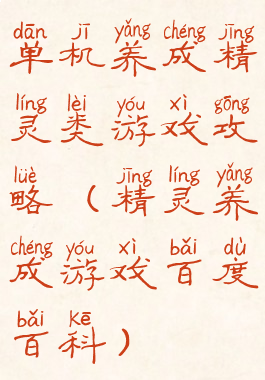 dān jī yǎng chéng jīng
单机养成精
líng lèi yóu xì gōng
灵类游戏攻
lüè jīng líng yǎng
略（精灵养
chéng yóu xì bǎi dù
成游戏百度
bǎi kē
百科）